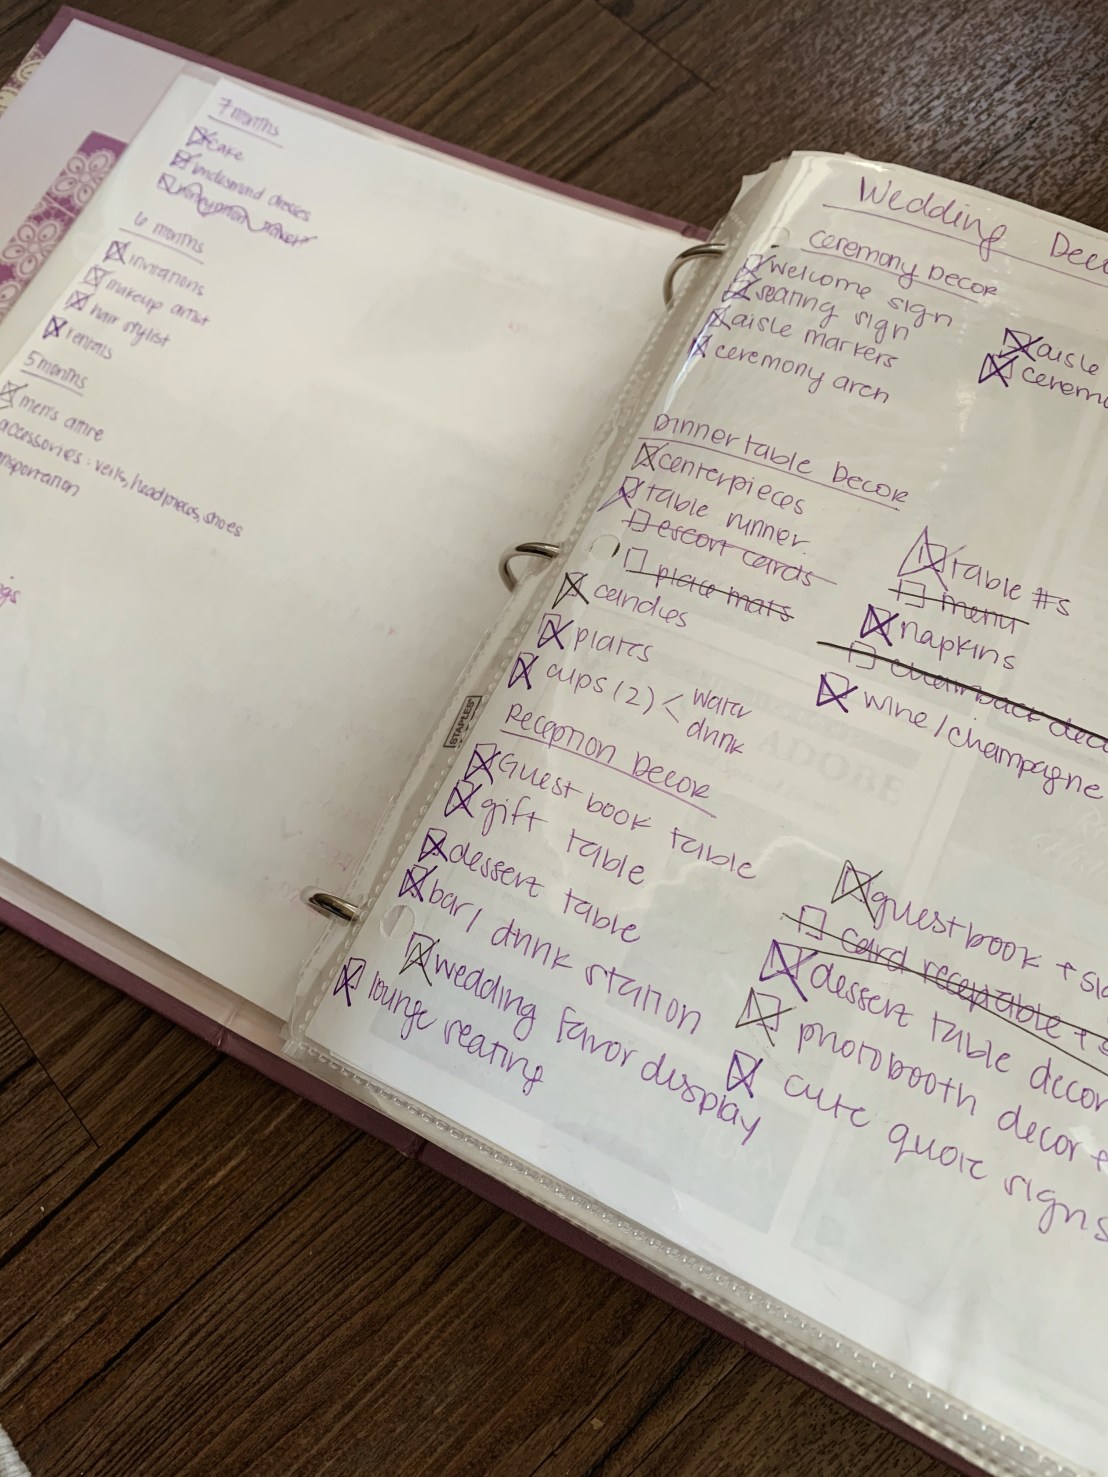 7 months
cake
bridesmaid dresses
honeymoon
6 months
invitations
makeup artist
hair stylist
rentals
5 months
men's attire
accessories: veils, headpieces, shoes
nsportation
gs
STAPLES
Wedding Deco
Ceremony Decor
welcome sign
seating sign
aisle markers
ceremony arch
aisle
ceremo
Dinner table Decor
centerpieces
table runner
escort cards
place mats
candles
plates
cups (2) < water
drink
table #s
menu
napkins
chairback deco
wine/champagne
Reception Decor
Guest book table
gift table
dessert table
bar/drink station
wedding favor display
lounge seating
guestbook + sig
card receptable + s
dessert table decor
photobooth decor +
cute quote signs